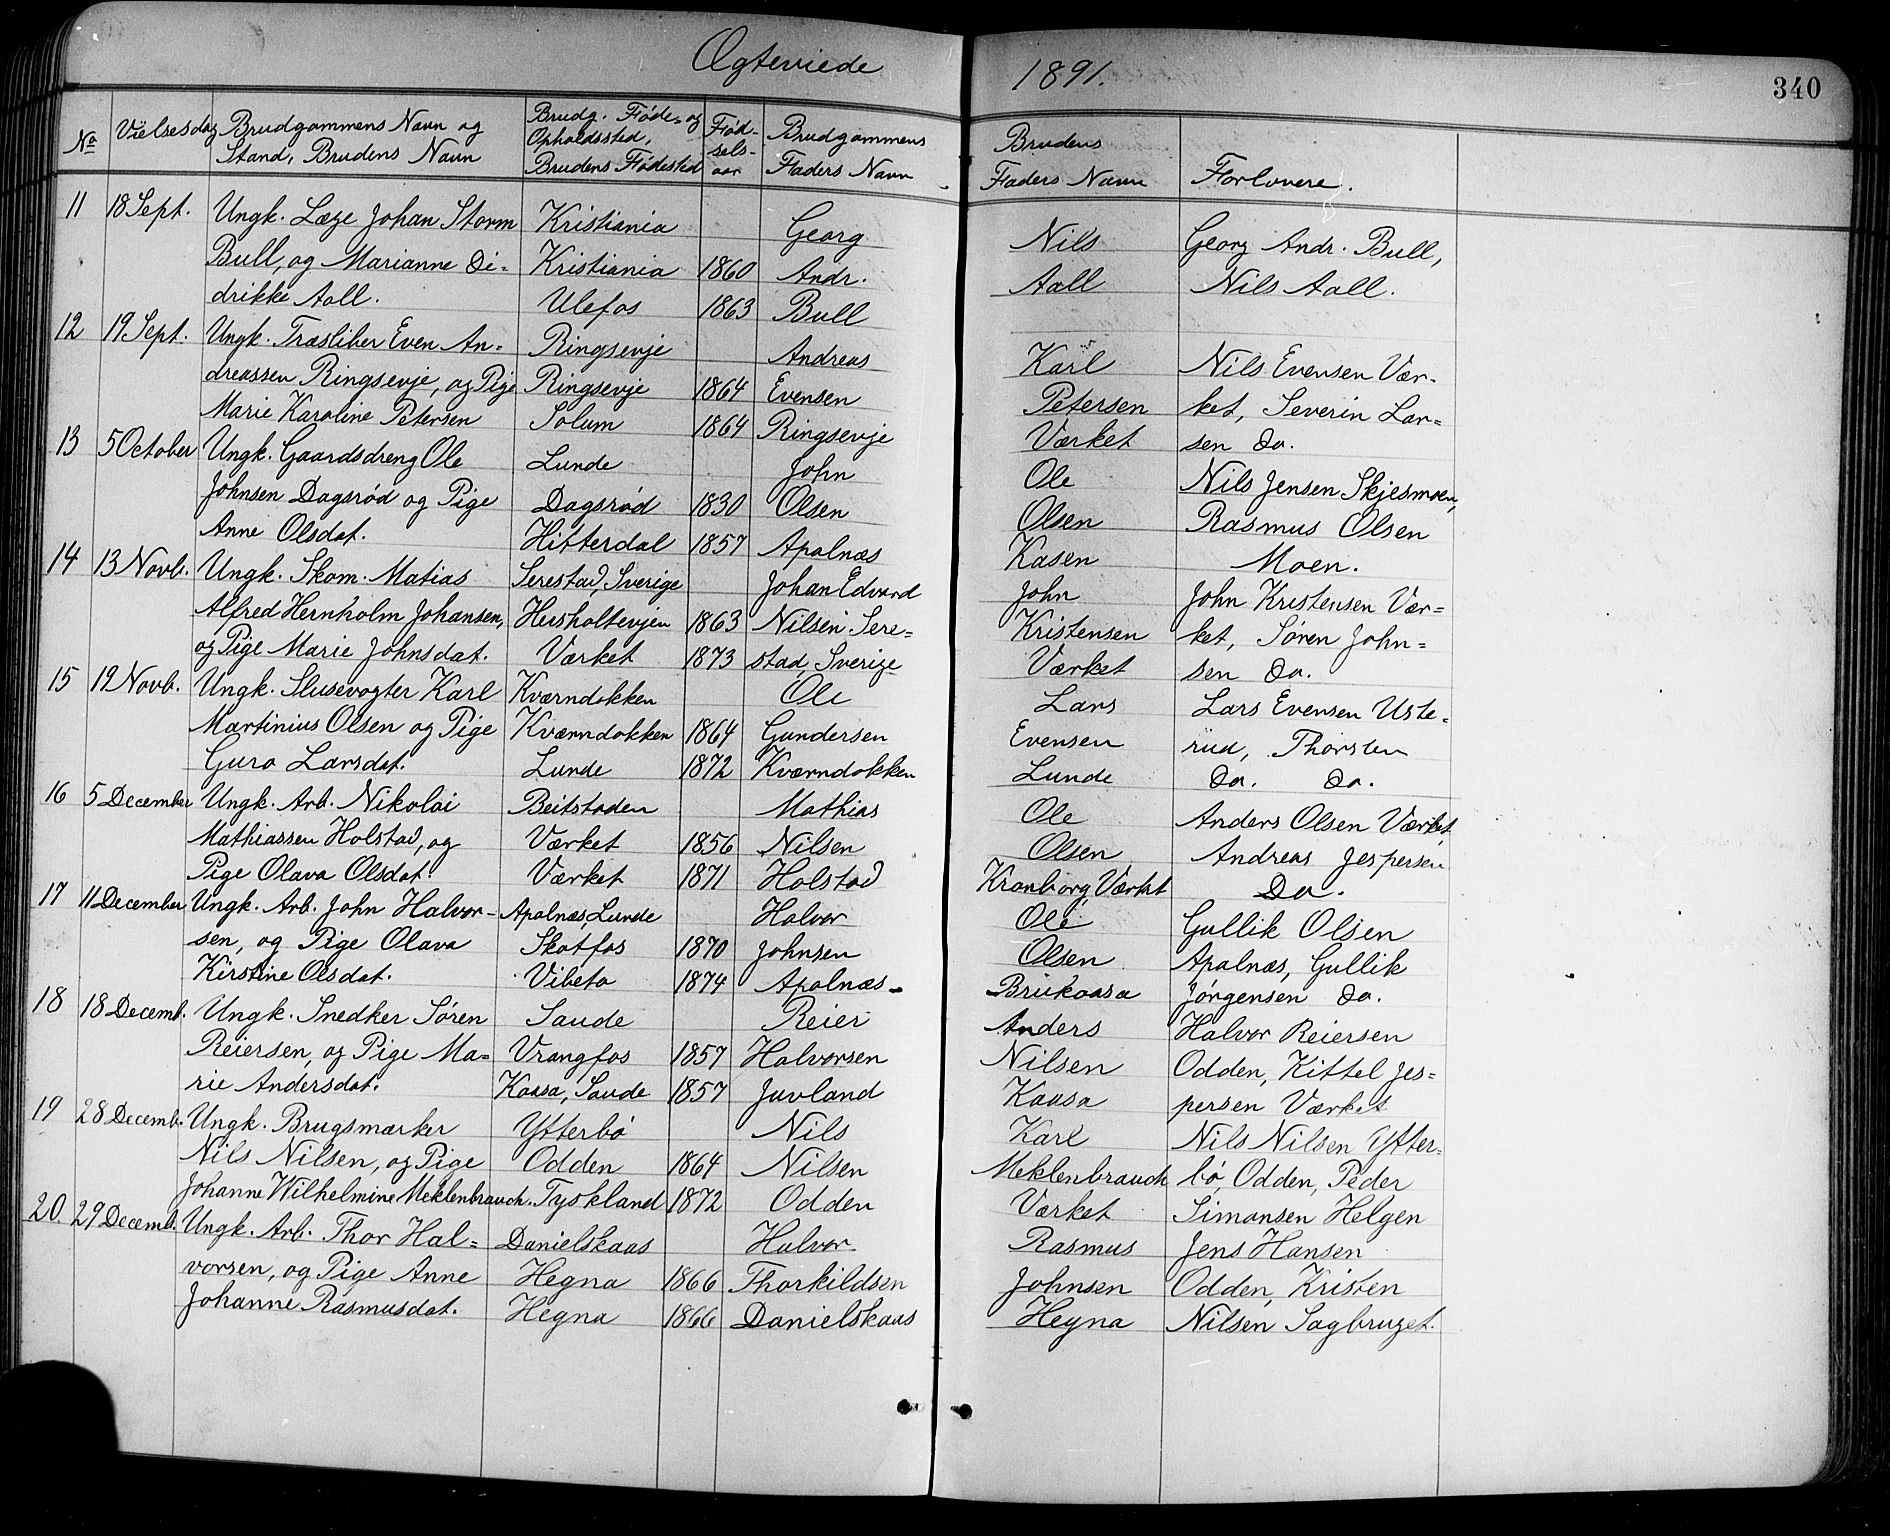 Ægteviede 1891. 340
No Vielsesdag Brudgommens Navn og Stand, Brudens Navn Brudg. Føde- og Opholdssted, Brudens Fødested Fødselsaar Brudgommens Faders Navn Brudens Faders Navn Forlovere.
11 18 Sept. Ungk. Læge Johan Storm Kristiania Georg Nils Georg Andr. Bull,
Bull, og Marianne Di- Kristiania 1860 Andr. Aall Nils Aall.
drikke Aall. Ulefos 1863 Bull
12 19 Sept. Ungk. Træsliber Even An- Ringsevje Andreas Karl Nils Evensen Vær-
dreassen Ringsevje, og Pige Ringsevje 1864 Evensen Petersen ket, Severin Lar-
Marie Karoline Petersen Solum 1864 Ringsevje Værket sen do.
13 5 October Ungk. Gaardsdreng Ole Lunde John Ole Nils Jensen Skjesmoen,
Johnsen Dagsrød og Pige Dagsrød 1830 Olsen Olsen Rasmus Olsen
Anne Olsdat. Hitterdal 1857 Apalnæs Kasen Moen.
14 13 Novb. Ungk. Skom. Matias Serestad, Sverige Johan Edvard John John Kristensen Vær-
Alfred Hernholm Johansen, Heisholtevjen 1863 Nilsen Sere- Kristensen ket, Søren John-
og Pige Marie Johnsdat. Værket 1873 stad, Sverige Værket sen do.
15 19 Novb. Ungk. Slusevogter Karl Kværndokken Ole Lars Lars Evensen Uste-
Martinius Olsen og Pige Kværndokken 1864 Gundersen Evensen rud, Thorsten
Guro Larsdat. Lunde 1872 Kværndokken Lunde do. do.
16 5 December Ungk. Arb. Nikolai Beitstaden Mathias Ole Anders Olsen Værket,
Mathiassen Holstad, og Værket 1856 Nilsen Olsen Andreas Jespersen
Pige Olava Olsdat. Værket 1871 Holstad Kronborg, Værket Do.
17 11 December Ungk. Arb. John Halvor- Apalnæs, Lunde Halvor Ole Gullik Olsen
sen, og Pige Olava Skotfos 1870 Johnsen Olsen Apalnæs, Gullik
Kirstine Olsdat. Vibeto 1874 Apalnæs Brukaasa Jørgensen do.
18 18 Decemb. Ungk. Snedker Søren Saude Reier Anders Halvor Reiersen
Reiersen, og Pige Ma- Vrangfos 1857 Halvorsen Nilsen Odden, Kittel Jes-
rie Andersdat. Kaasa, Saude 1857 Juvland Kaasa persen Værket
19 28 Decemb. Ungk. Brugsmærker Ytterbø Nils Karl Nils Nilsen Ytter-
Nils Nilsen, og Pige Odden 1864 Nilsen Meklenbrauch bø, Odden, Peder
Johanne Wilhelmine Meklenbrauch. Tyskland 1872 Odden Værket Simonsen Helgen
20. 29 Decemb. Ungk. Arb. Thor Hal- Danielskaas Halvor Rasmus Jens Hansen
vorsen, og Pige Anne Hegna 1866 Thorkildsen Johnsen Odden, Kristen
Johanne Rasmusdat. Hegna 1866 Danielskaas Hegna Nilsen Sagbruget.